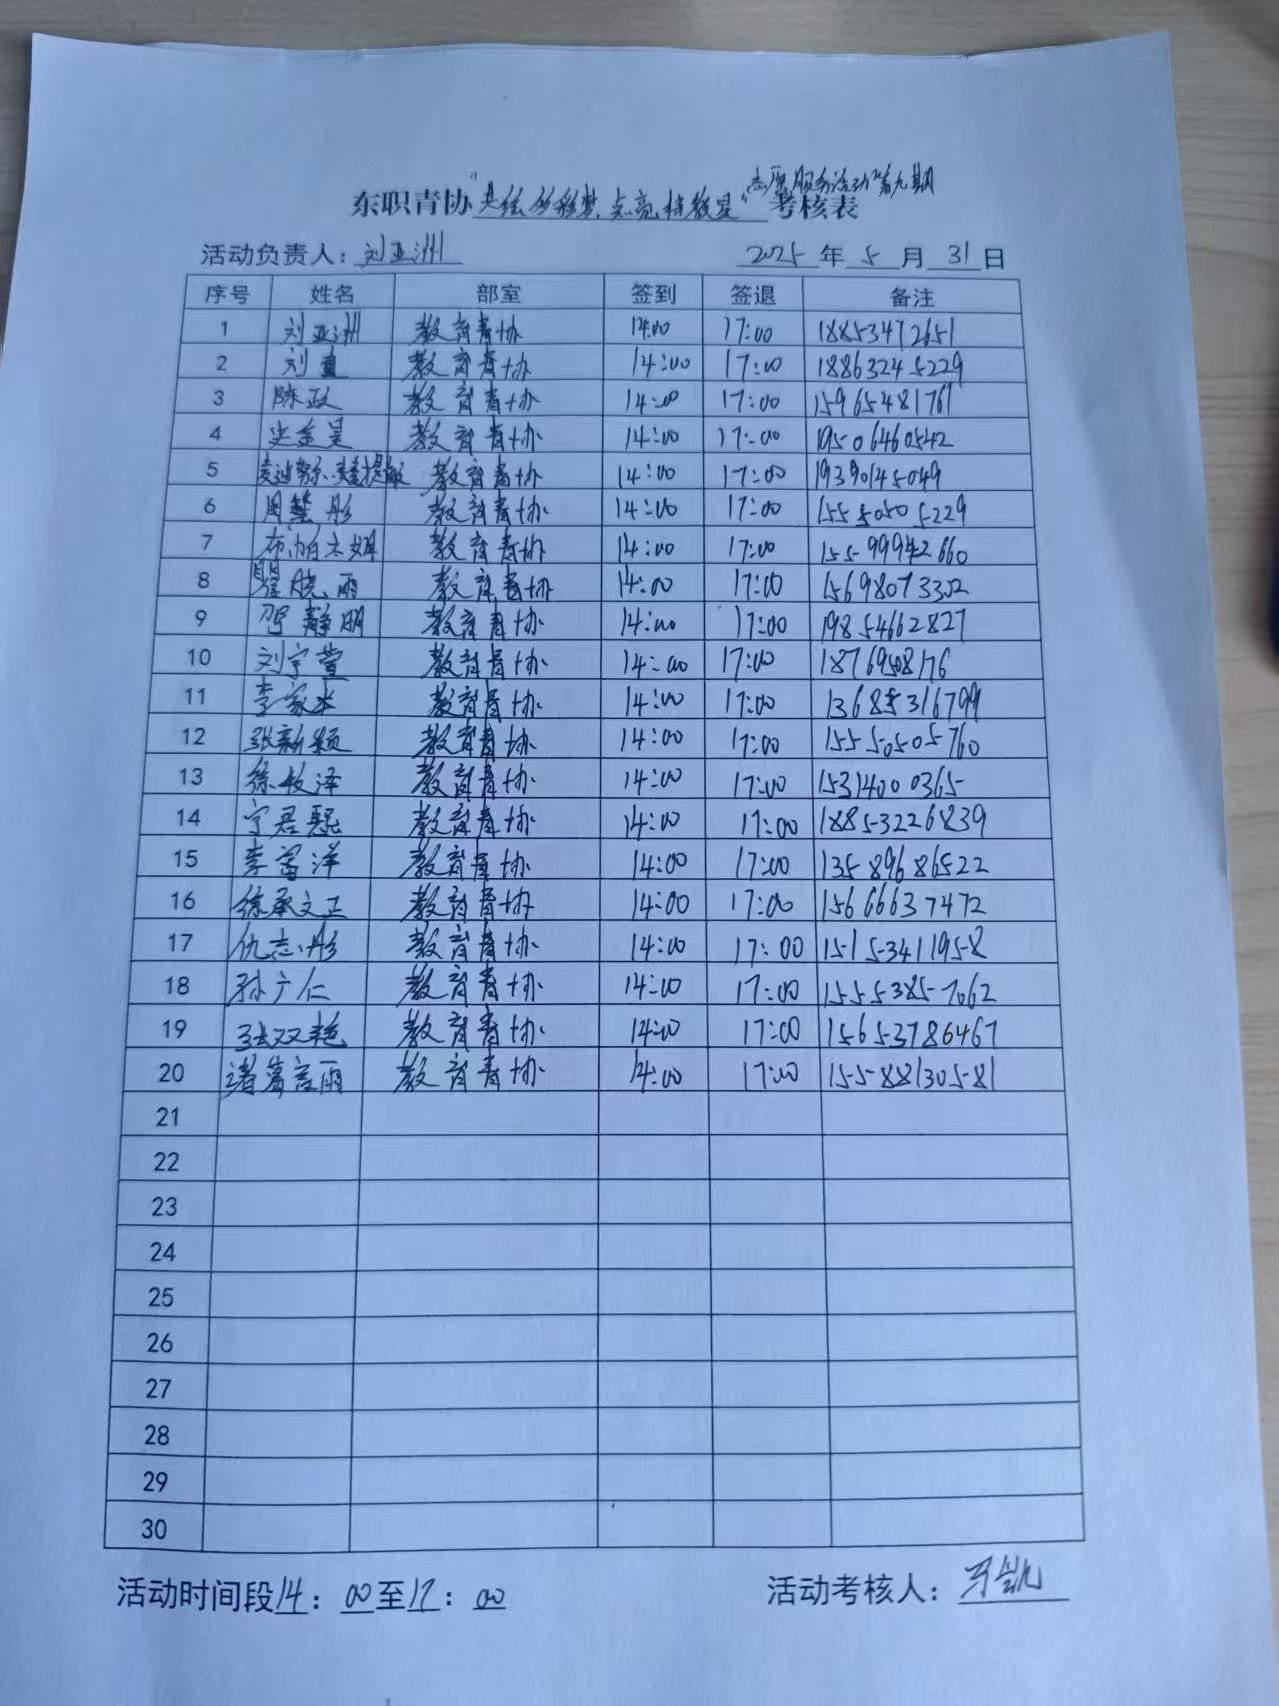 志愿服务活动"第九期
东职青协"共绘多彩梦,点亮特教星"考核表
活动负责人:刘亚洲 2025年5月31日
序号 姓名 部室 签到 签退 备注
1 刘亚洲 教育青协 14:00 17:00 18853472651
2 刘 教育青协 14:00 17:00 18863245229
3 陈政 教育青协 14:00 17:00 15965481761
4 史金昊 教育青协 14:00 17:00 19506460542
5 教育青协 14:00 17:00 19390145049
6 周慧彤 教育青协 14:00 17:00 15550505229
7 布帕木姆 教育青协 14:00 17:00 15599942660
8 瞿晓雨 教育青协 14:00 17:00 15698073302
9 静明 教育青协 14:00 17:00 19854662827
10 刘宇萱 教育青协 14:00 17:00 18769508176
11 李家 教育青协 14:00 17:00 13685316799
12 张新颖 教育青协 14:00 17:00 15550505760
13 徐敏泽 教育青协 14:00 17:00 15314000365
14 宁君熙 教育青协 14:00 17:00 18853226839
15 李富洋 教育青协 14:00 17:00 13589686522
16 徐承文正 教育青协 14:00 17:00 15666637472
17 仇志彤 教育青协 14:00 17:00 15153411958
18 孙广仁 教育青协 14:00 17:00 15553857062
19 张双艳 教育青协 14:00 17:00 15653786467
20 诸葛高雨 教育青协 14:00 17:00 15588130581
21
22
23
24
25
26
27
28
29
30
活动时间段14:00至17:00 活动考核人:凯